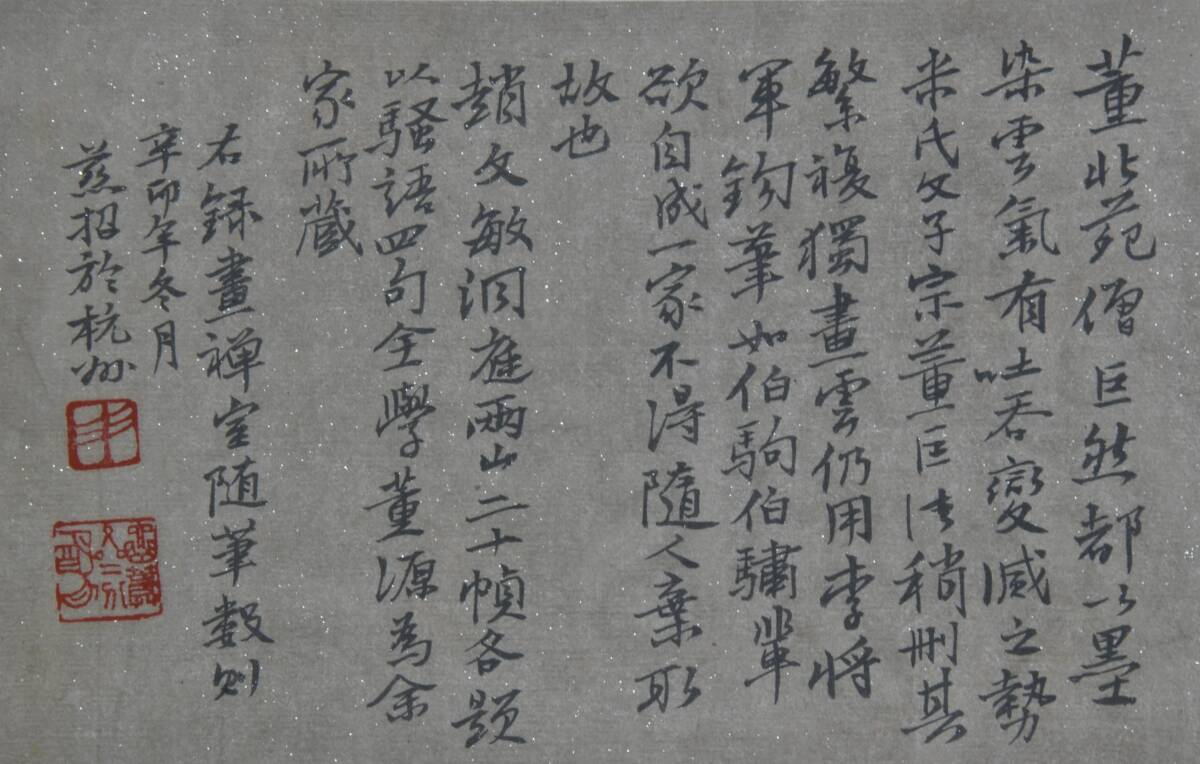 董北苑僧巨然都以墨
染雲氣有吐吞變滅之勢
米氏父子宗董巨法稍刪其
繁複獨畫雲仍用李將
軍鉤筆如伯駒伯驌輩
欲自成一家不得隨人棄取
故也
趙文敏洞庭兩山二十幀各題
以騷語四句全學董源為余
家所藏
右錄畫禪室随筆数则
辛卯年冬月
慈招於杭州